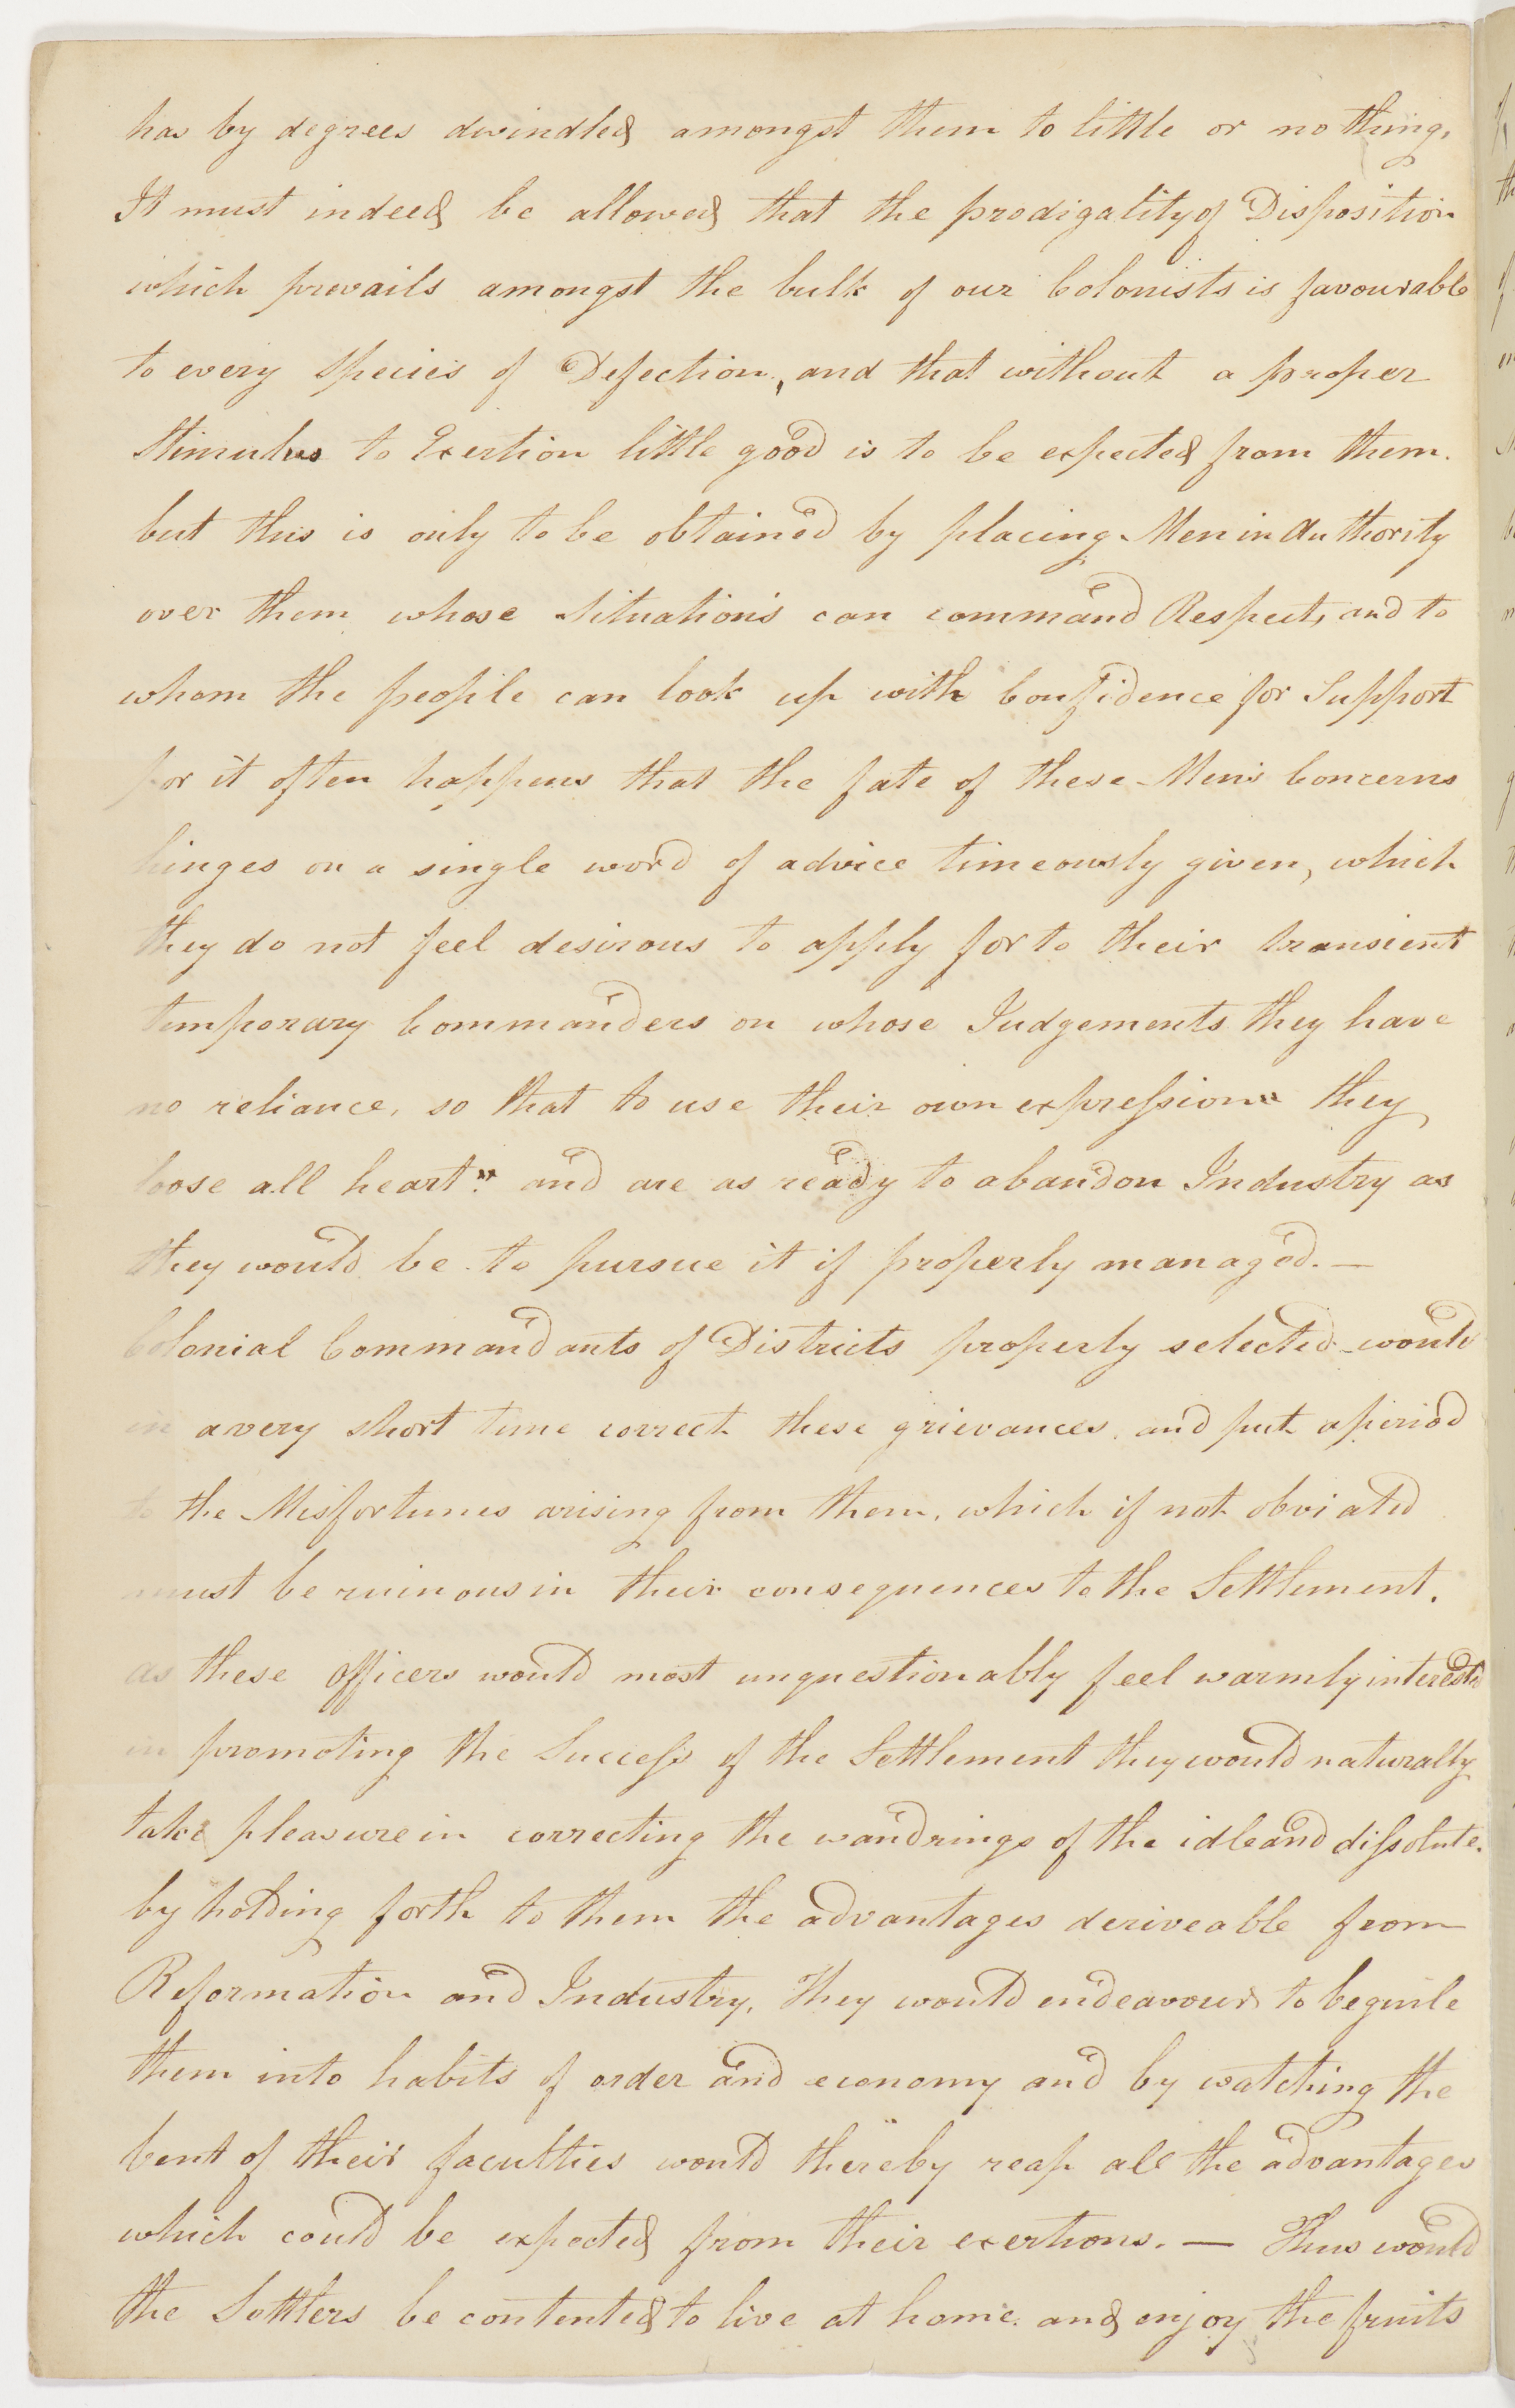 has by degrees dwindled amongst them to little or nothing,
It must indeed be allowed that the prodigality of Disposition
which prevails amongst the bulk of our Colonists is favourable
to every Species of Defection, and that without a proper
Stimulus to Exertion little good is to be expected from them.
but this is only to be obtained by placing Men in Authority
over them whose Situations can command Respect, and to
whom the people can look up with Confidence for Support
for it often happens that the fate of these Mens Concerns
hinges on a single word of advice timeously given, which
they do not feel desirous to apply for to their transient
temporary Commanders on whose Judgements they have
no reliance, so that to use their own expression " they
loose all heart" and are as ready to abandon Industry as
they would be to pursue it if properly managed. —
Colonial Commandants of Districts properly selected would
in a very short time correct these grievances, and put a period
to the Misfortunes arising from them, which if not obviated
must be ruinous in their consequences to the Settlement.
as these Officers would most unquestionably feel warmly interested
in promoting the Success of the Settlement they would naturally
take pleasure in correcting the wandrings of the idle and dissolute.
by holding forth to them the advantages deriveable from
Reformation and Industry, They would endeavour to beguile
them into habits of order and economy and by watching the
bent of their faculties would thereby reap all the advantages
which could be expected from their exertions. — Thus would
the Settlers be contented to live at home and enjoy the fruits